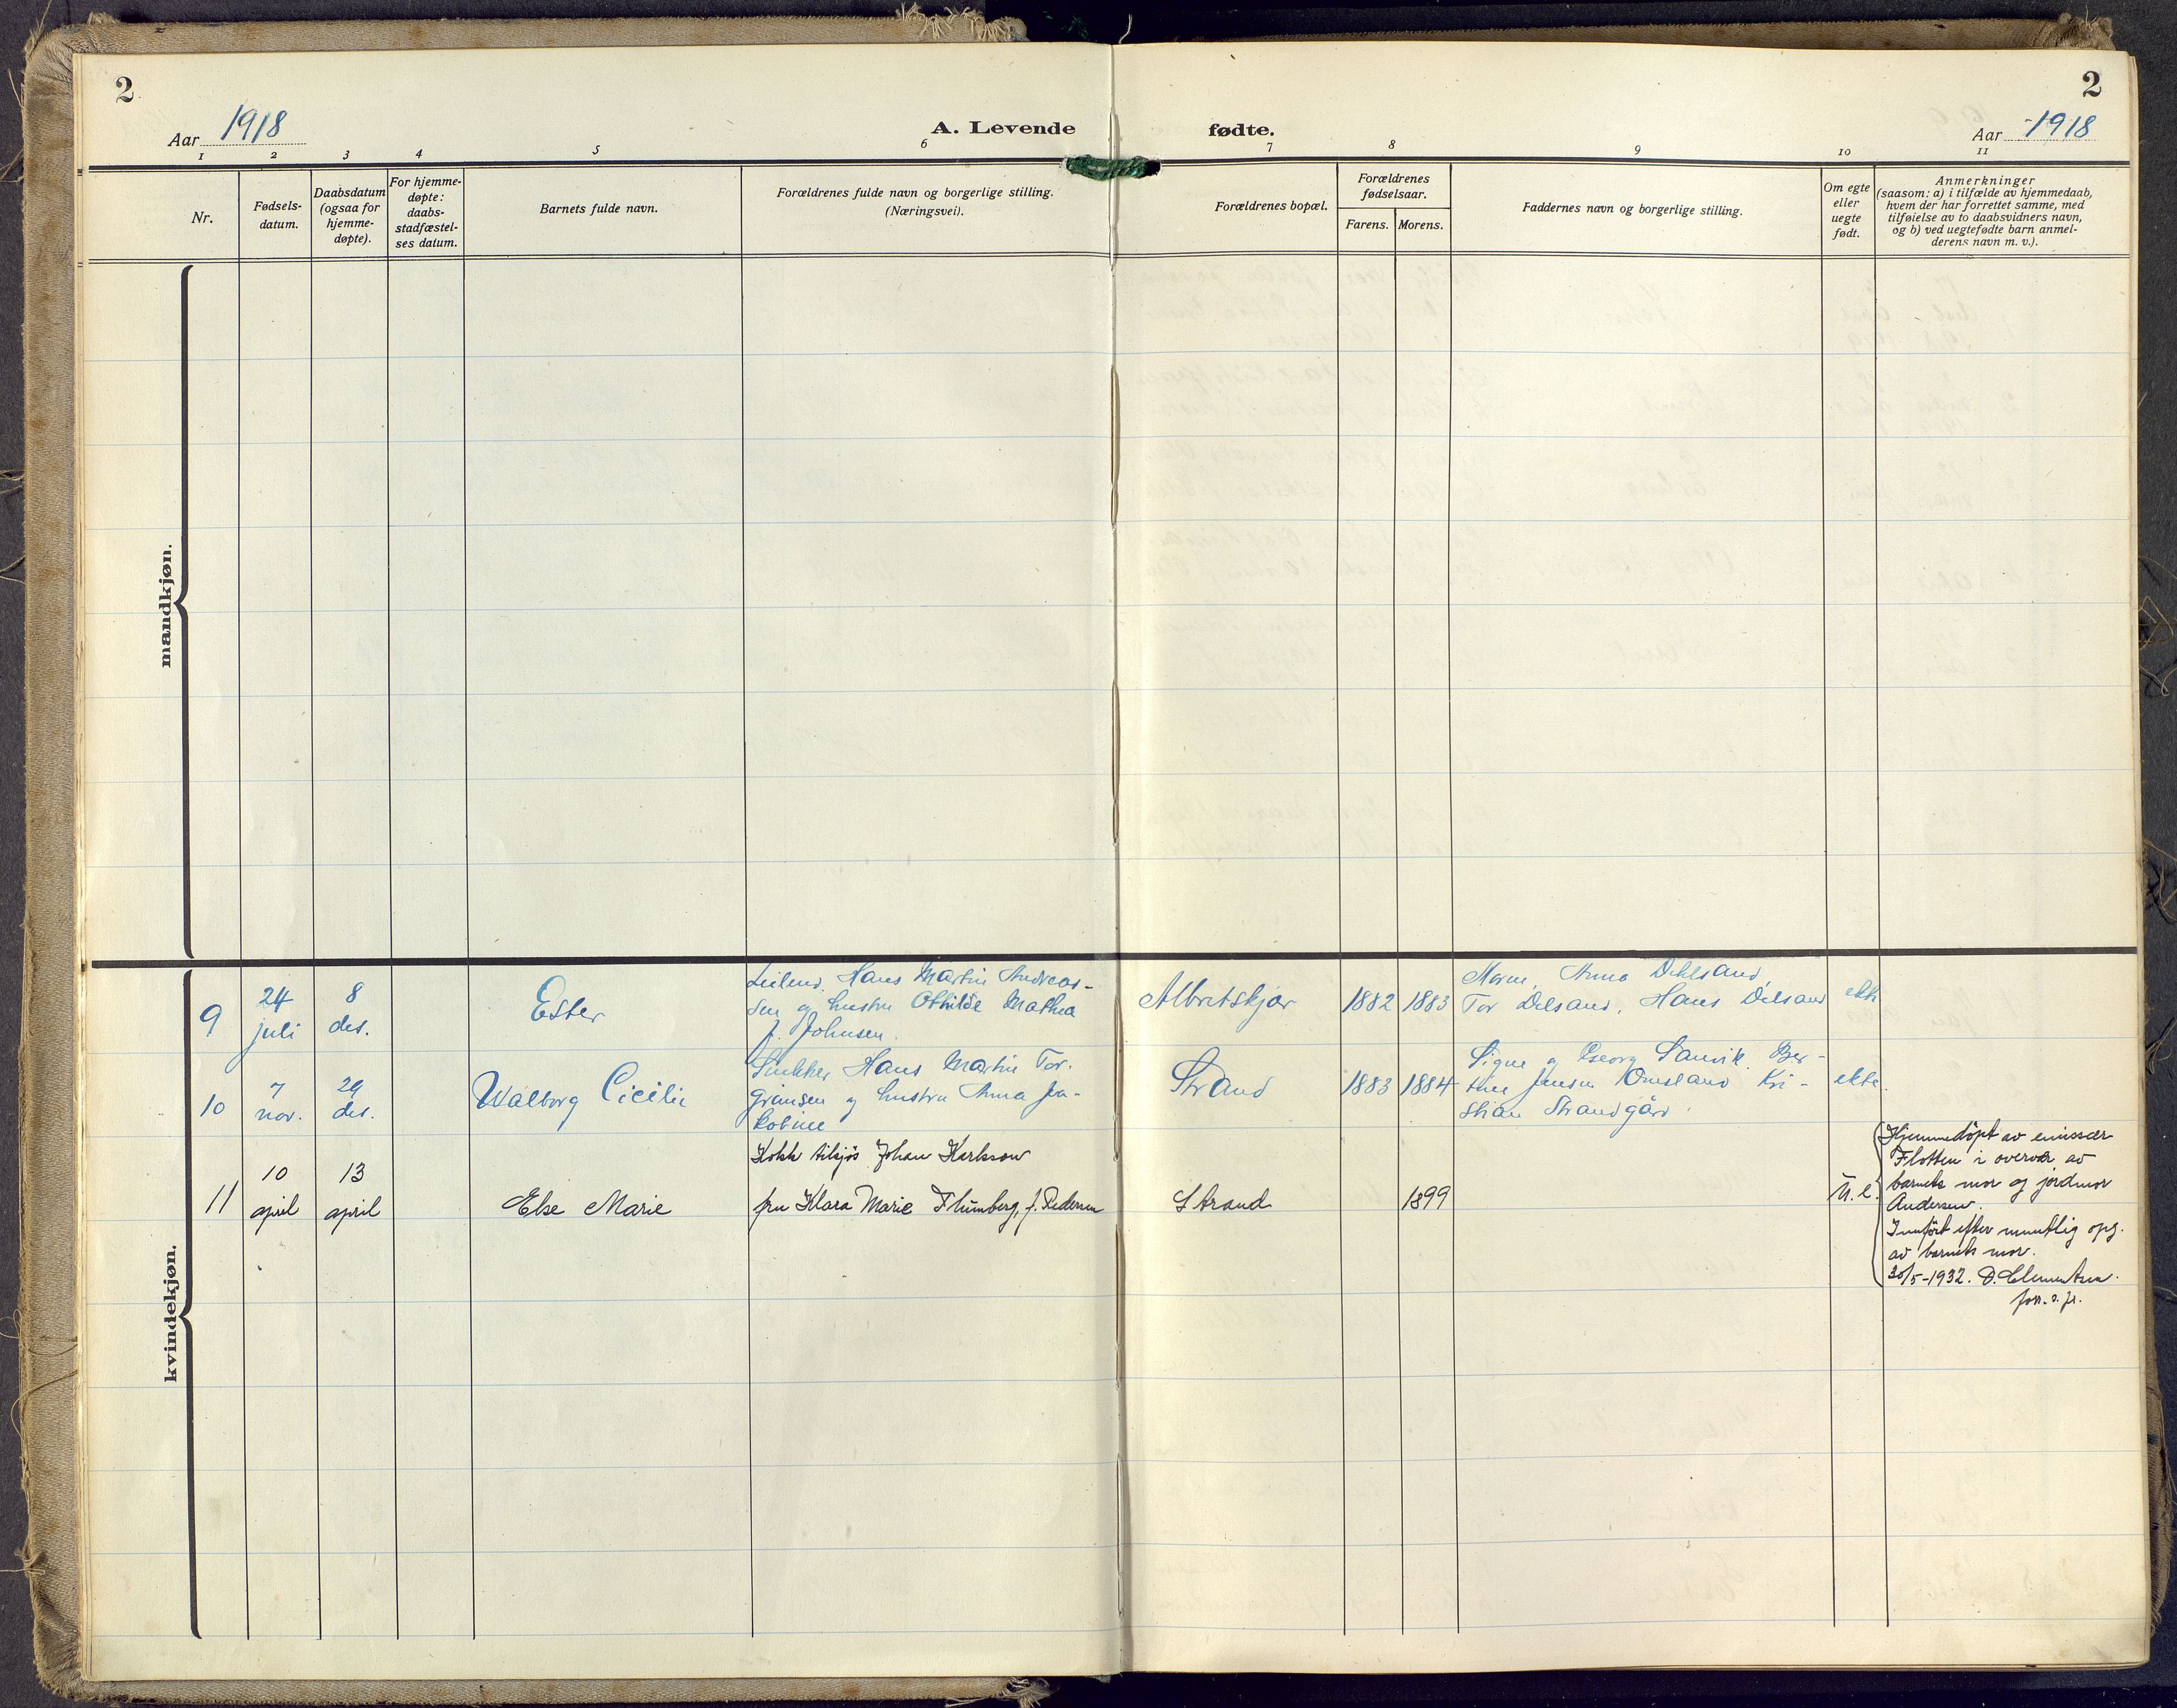 2
2
Aar 1918
A. Levende fødte.
Aar 1918
1 2 3 4 5 6 7 8 9 10 11
Nr.
Fødsels-
datum.
Daabsdatum
(ogsaa for
hjemme-
døpte).
For hjemme-
døpte:
daabs-
stadfæstel-
ses datum.
Barnets fulde navn.
Forældrenes fulde navn og borgerlige stilling.
(Næringsvei).
Forældrenes bopæl.
Forældrenes
fødselsaar.
Farens. Morens.
Faddernes navn og borgerlige stilling.
Om egte
eller
uegte
født.
Anmerkninger
(saasom: a) i tilfælde av hjemmedaab,
hvem der har forrettet samme, med
tilføielse av to daabsvidners navn,
og b) ved uegtefødte barn anmel-
derens navn m. v.).
mandkjøn.
kvindekjøn.
9
24
juli
8
des.
Ester
Hans Martin Andreas-
sen og hustru Othilde Mathea
f. Johnsen.
Albretskjær
1882 1883
Anna Dehlsand,
Tor Delsand, Hans Delsand
ekte
10
7
nov.
29
des.
Walborg Cicilie
Hans Martin Tor-
grimsen og hustru Anna Ja-
kobine
Strand
1883 1884
Signe og Georg Sanvik. Ber-
the Jensen Omsland Kri-
stian Strandgård.
ekte.
11
10
april
13
april
Else Marie
Kokk tilsjøs Johan Karlsson
fru Klara Marie Flümberg, f. Pedersen
Strand
1899
u.e.
Hjemmedöpt av emissær
Flotten i overvær av
barnets mor og jordmor
Andersen.
Innfört efter muntlig opg.
av barnets mor.
30/5-1932. D. Clementsen.